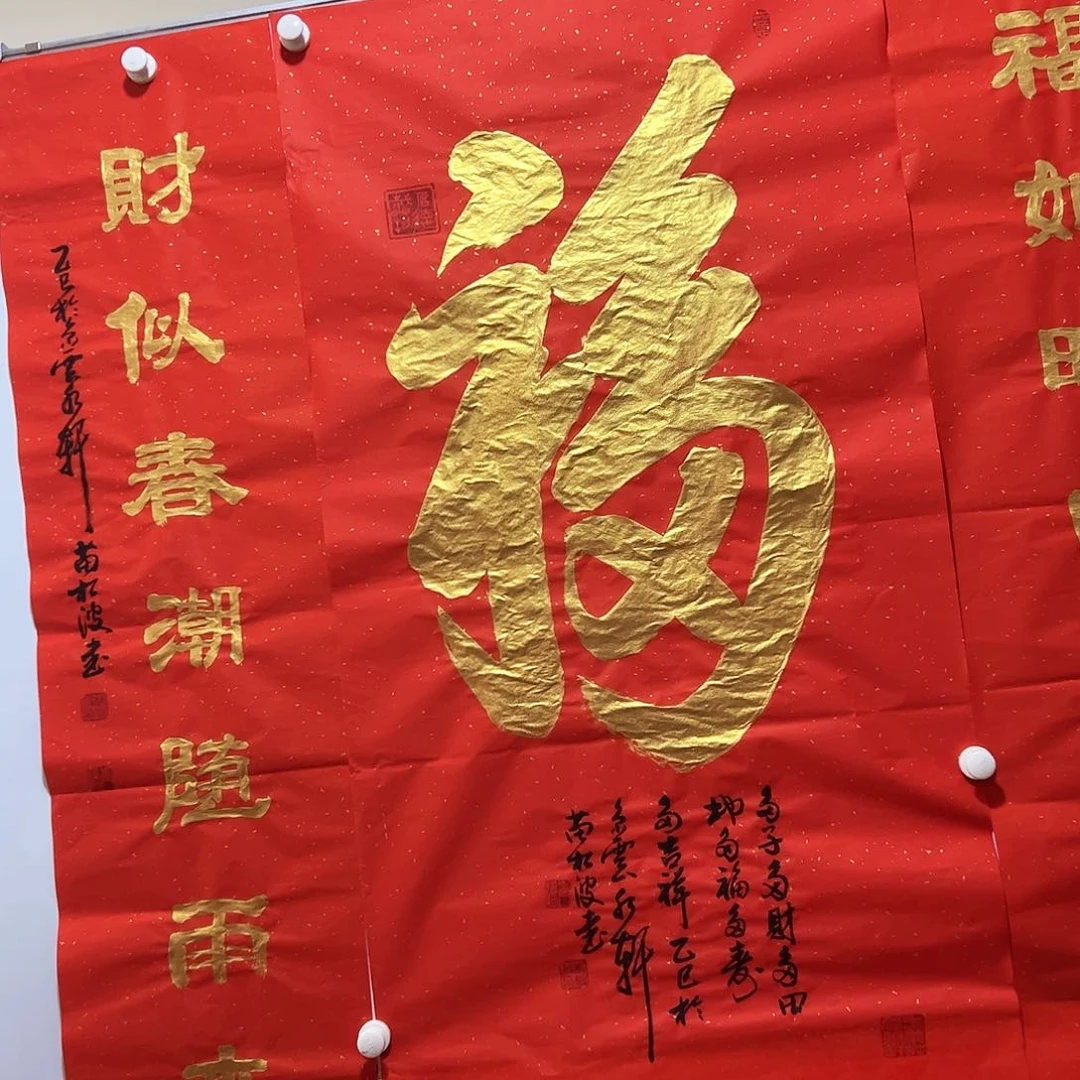 福如
福
多子多財多田
地多福多壽
多吉祥乙巳於
雲水軒
苗松波書
財似春潮随雨
乙巳於雲水軒
苗松波書